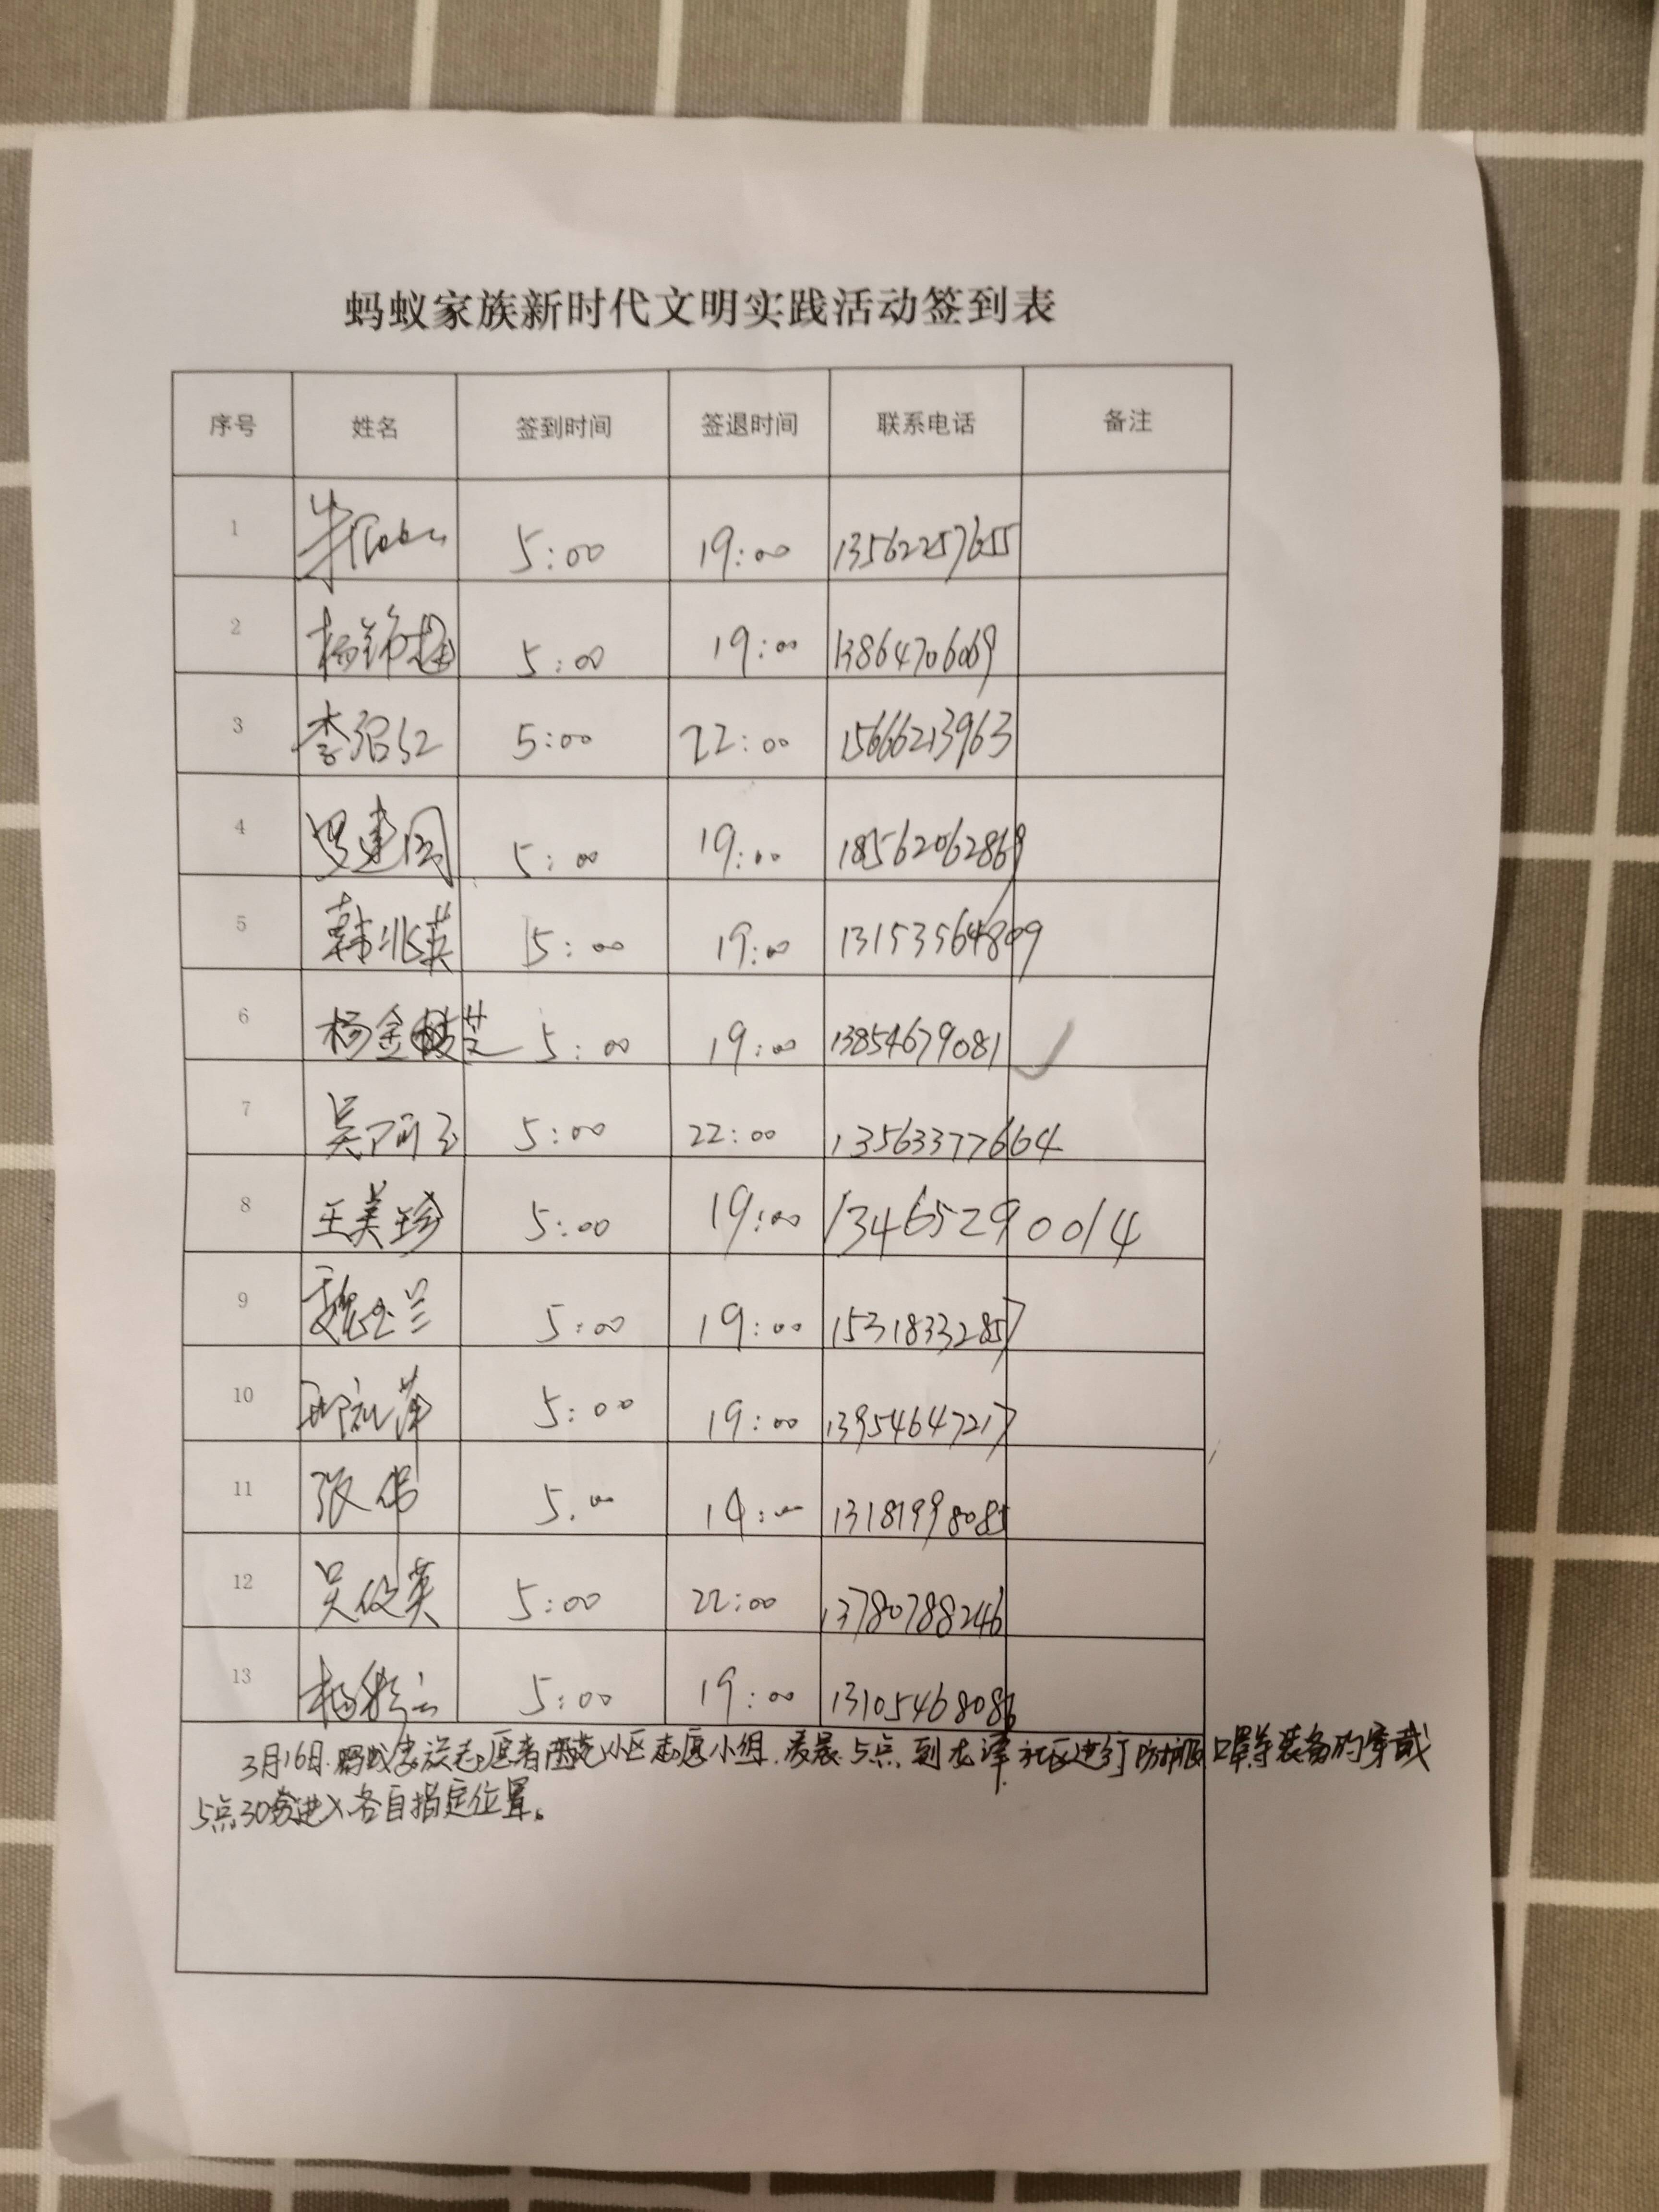 蚂蚁家族新时代文明实践活动签到表
序号 姓名 签到时间 签退时间 联系电话 备注
1 5:00 19:00 13562257655
2 杨 5:00 19:00 13864706069
3 李绍红 5:00 22:00 15666213963
4 罗建国 5:00 19:00 18562062869
5 韩兆英 5:00 19:00 13153564809
6 杨金芝 5:00 19:00 13854679081 ✓
7 吴阿玉 5:00 22:00 13563377664
8 王美珍 5:00 19:00 13465290014
9 魏玉兰 5:00 19:00 15318332857
10 5:00 19:00 13954647217
11 张伟 5:00 14:00 13181998085
12 吴俊英 5:00 22:00 13780788246
13 杨 5:00 19:00 13105468086
3月16日.蚂蚁家族志愿者 小区志愿小组.凌晨5点到龙泽社区进行防护服口罩等装备的穿戴
5点30分进入各自指定位置。